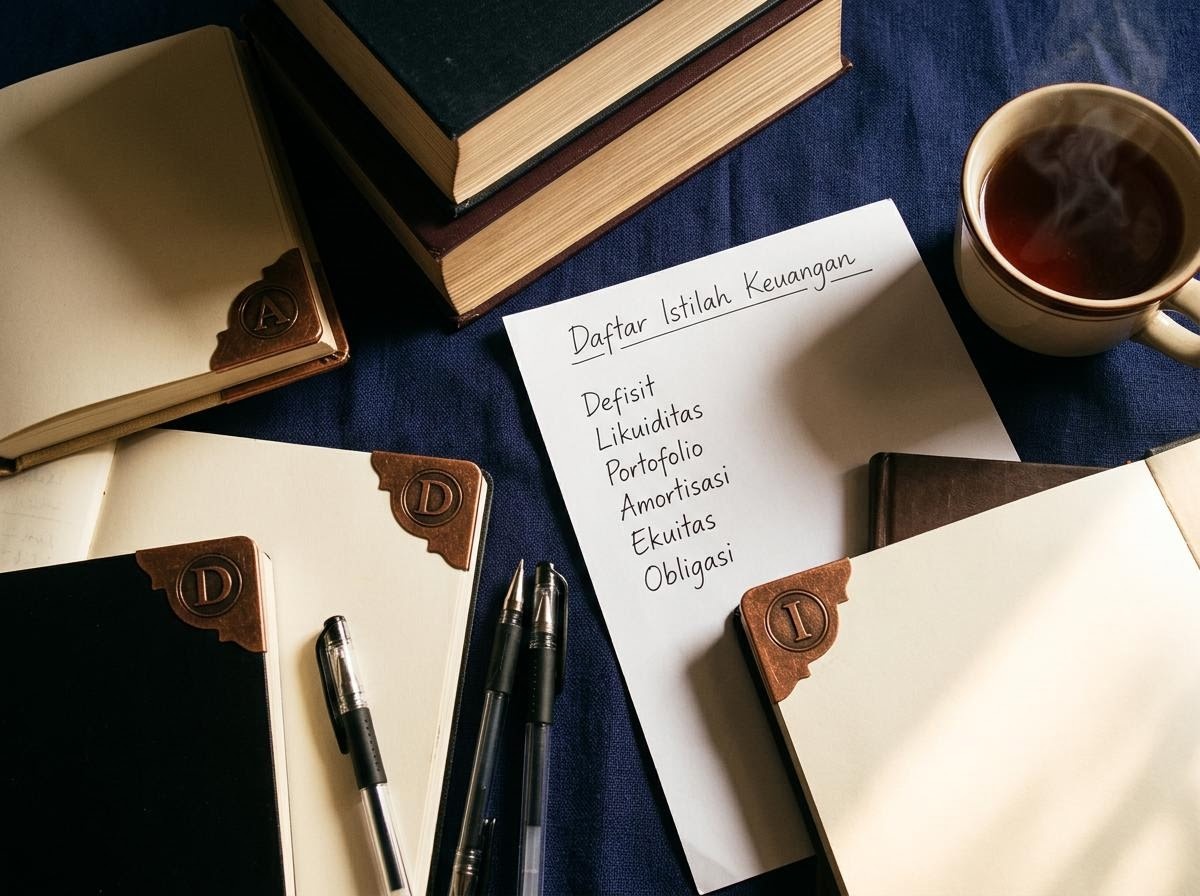 A
Daftar Istilah Keuangan
Defisit
Likuiditas
Portofolio
Amortisasi
Ekuitas
Obligasi
D
D
I